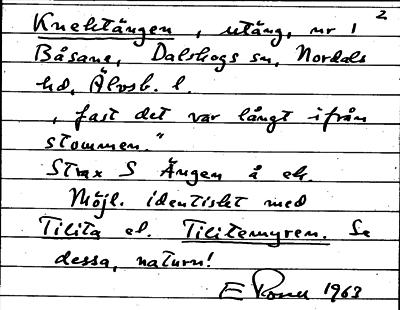 2
Knektängen, utäng, nr 1
Båsane, Dalskogs sn, Nordals
hd, Älvsb. l.
, fast det var långt ifrån
stommen."
Strax S Ängen å ek.
Möjl. identiskt med
Tilita el. Tilitemyren. Se
dessa, naturn!
E 1963